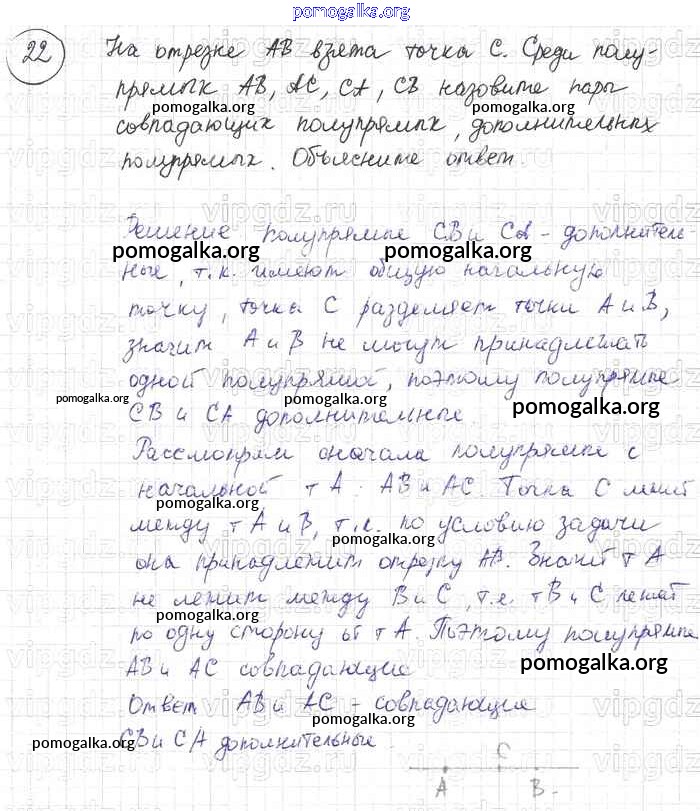 pomogalka.org
22 На отрезке AB взята точка C. Среди полу-
прямых AB, AC, CA, CB назовите пары
pomogalka.org pomogalka.org
совпадающих полупрямых, дополнительных
полупрямых. Объясните ответ.
Решение полупрямые CB и CA - дополнитель-
pomogalka.org pomogalka.org
ные, т.к. имеют общую начальную
точку, точка C разделяет точки A и B,
значит A и B не могут принадлежать
одной полупрямой, поэтому полупрямые
pomogalka.org pomogalka.org pomogalka.org
CB и CA дополнительные.
Рассмотрим сначала полупрямые с
начальной т A: AB и AC. Точка C лежит
pomogalka.org
между т A и B, т.к. по условию задачи
pomogalka.org
она принадлежит отрезку AB. Значит т A
не лежит между B и C, т.е. т B и C лежат
pomogalka.org pomogalka.org
по одну сторону от т A. Поэтому полупрямые
AB и AC совпадающие
pomogalka.org
Ответ AB и AC - совпадающие
pomogalka.org
CB и CA дополнительные.
pomogalka.org
C
A B